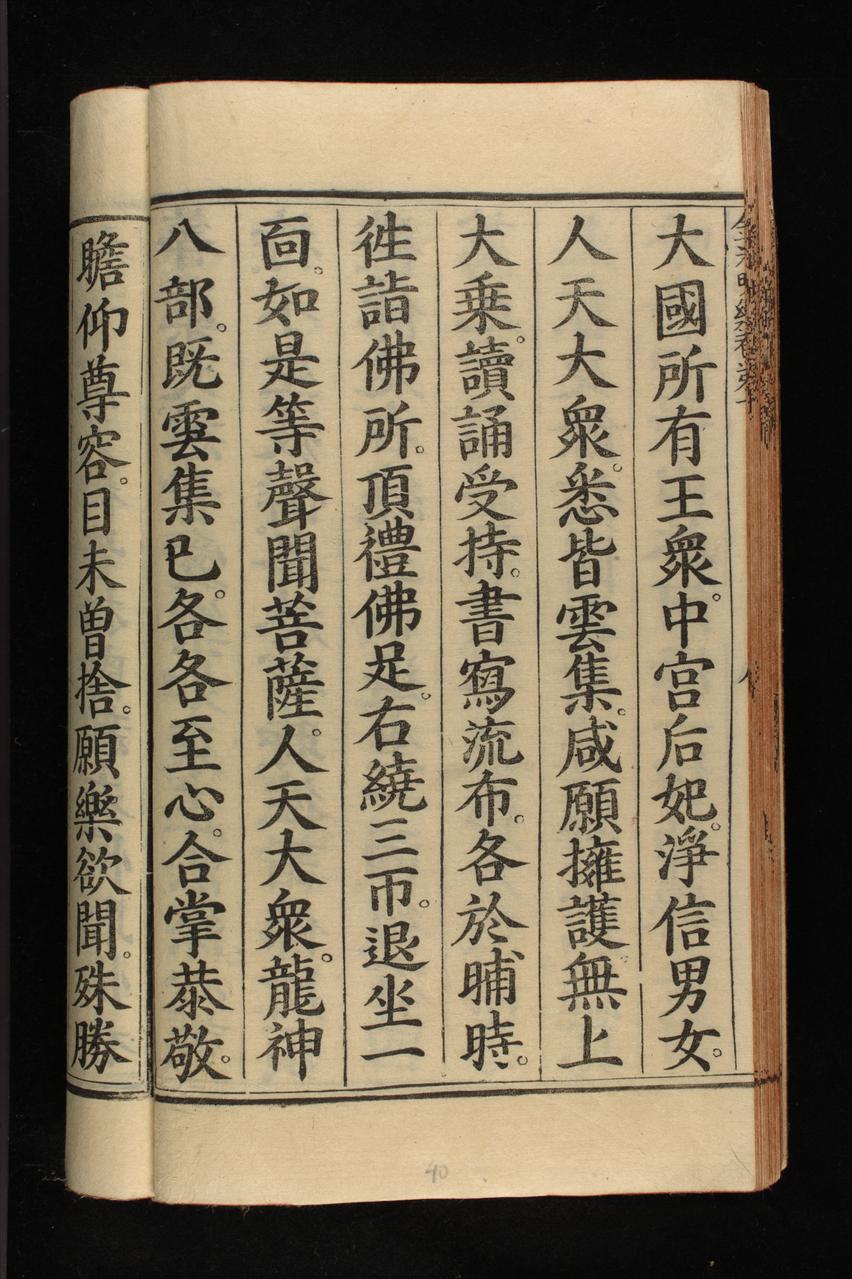 大國所有王衆。中宫后妃。淨信男女。
人天大衆。悉皆雲集。咸願擁護無上
大乗。讀誦受持。書寫流布。各於晡時。
徃詣佛所。頂禮佛足。右繞三帀。退坐一
面。如是等聲聞菩薩。人天大衆。龍神
八部。既雲集已。各各至心。合掌恭敬。
瞻仰尊容。目未曾捨。願樂欲聞。殊勝
40